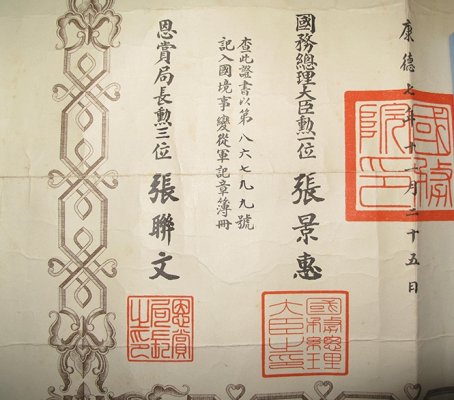 康德七年十一月二十五日
國務院印
國務總理大臣勳一位 張景惠
查此證書以第八六七九九號
記入國境事變從軍記章簿冊
恩賞局長勳三位 張聯文
國務總理大臣之印
恩賞局長之印